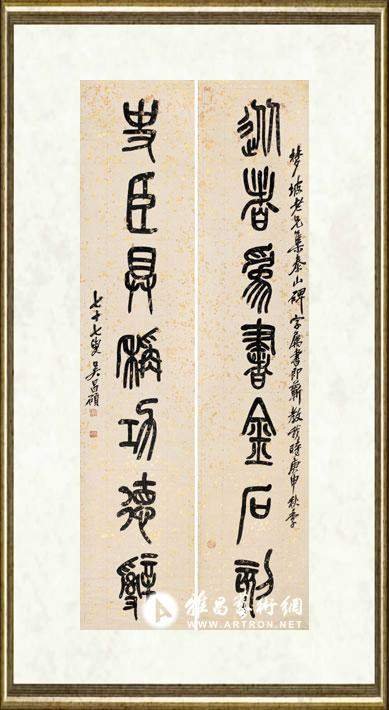 從者為書金石刻
夢坡老兄集泰山碑字屬書即蘄教我時庚申秋季
史臣具稱功德辭
七十七叟吳昌碩
雅昌藝術網
WWW.ARTRON.NET